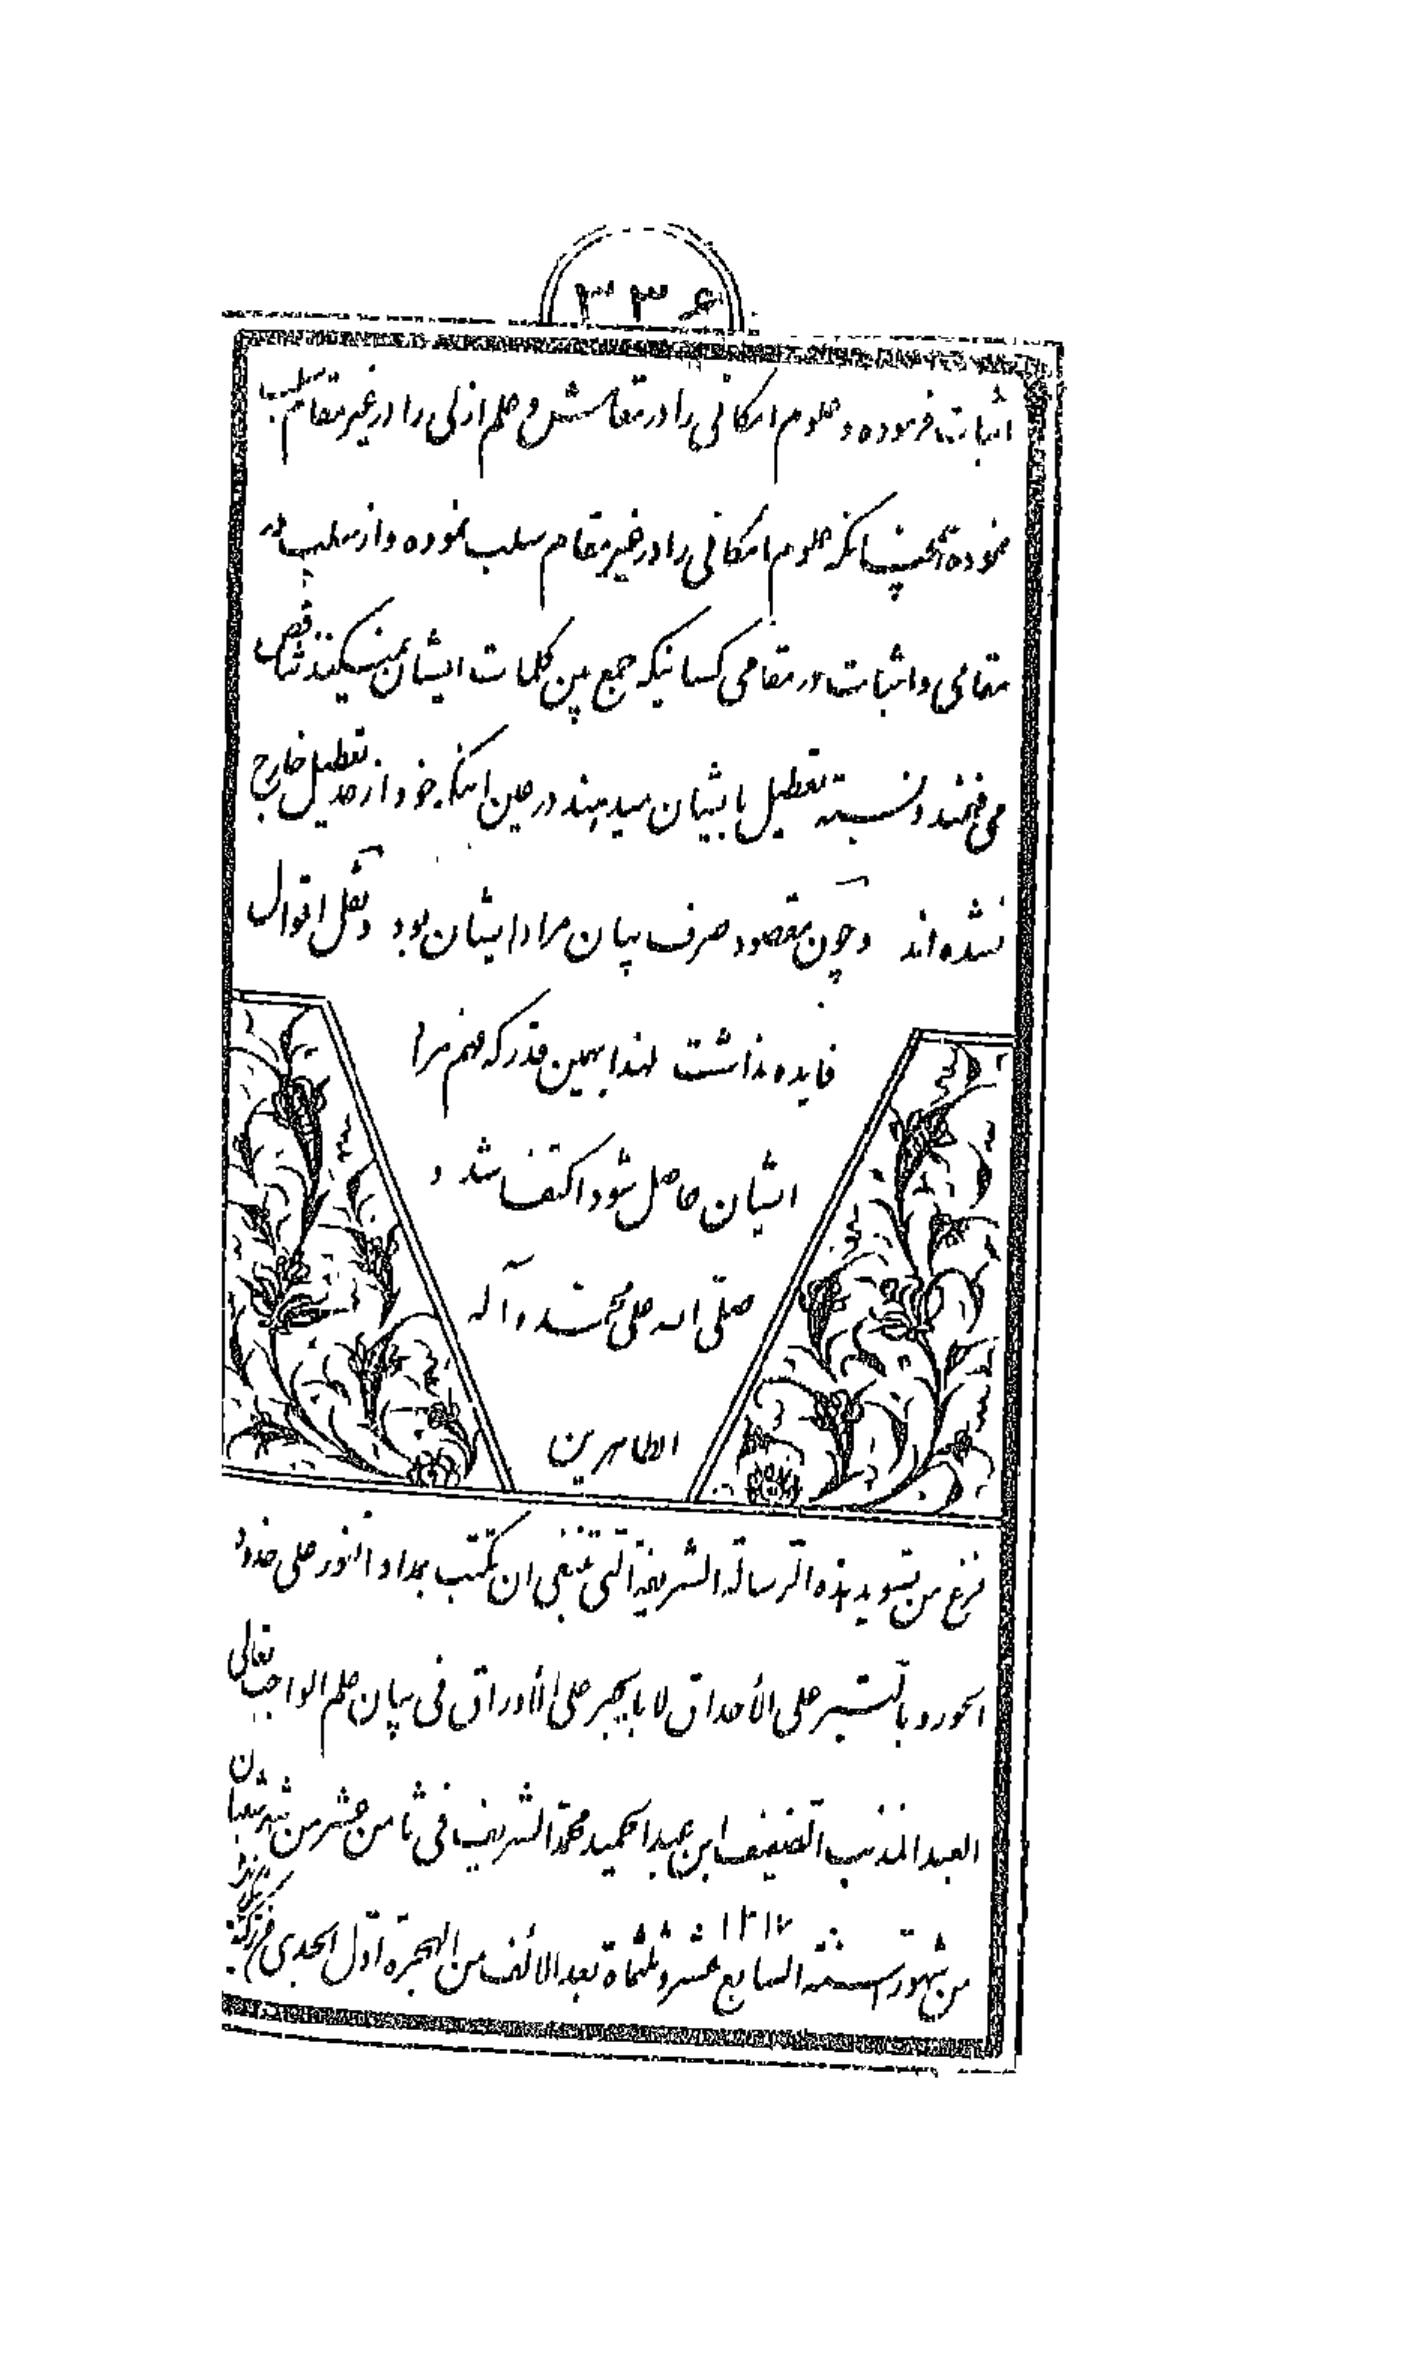 ۳۳۶
اثبات فرموده و علوم امکانی را در مقامش و علم ازلی را در غیر مقامش سلب
نموده همچنانکه علوم امکانی را در غیر مقام سلب نموده و از سلب در
مقامی و اثبات در مقامی کسانیکه جمع بین کلمات ایشان نمیکنند تناقض
می فهمند و نسبت تعطیل بایشان میدهند در عین اینکه خود از حد تعطیل خارج
نشده اند و چون مقصود صرف بیان مراد ایشان بود و نقل اقوال
فایده نداشت لهذا بهمین قدر که فهم مراد
ایشان حاصل شود اکتفا شد و
صلّی الله علی محمّد و آله
الطاهرین
فرغ من تسوید هذه الرسالة الشریفة الّتی ینبغی ان تکتب بمداد النور علی خدود
الحور و بالتبر علی الأحداق لا بالحبر علی الأوراق فی بیان علم الواجب تعالی
العبد المذنب الضعیف ابن عبد الحمید محمّد الشریف فی ثامن عشر من شهر شعبان
من شهور سنة السابع عشر و ثلثماة بعد الالف من الهجرة اوّل الجدی
۱۳۱۷